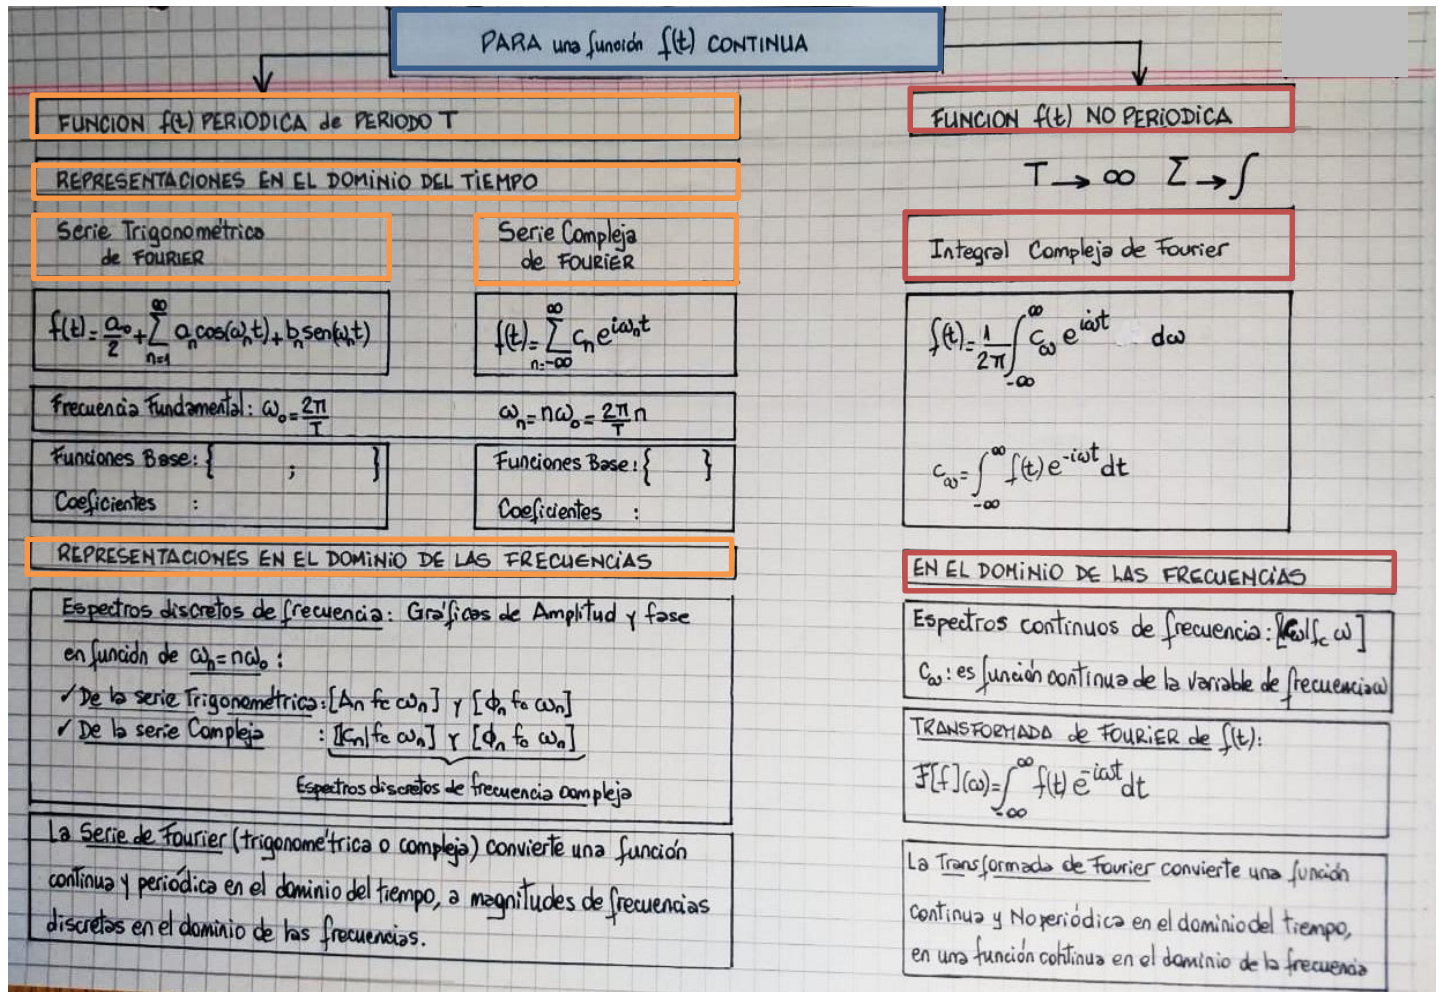 PARA una función f(t) CONTINUA
FUNCION f(t) PERIODICA de PERIODO T
REPRESENTACIONES EN EL DOMINIO DEL TIEMPO
Serie Trigonométrica
de FOURIER
Serie Compleja
de FOURIER
f(t)=a₀/2+∑_{n=1}^{∞} aₙcos(ωₙt)+bₙsen(ωₙt)
f(t)=∑_{n=-∞}^{∞} cₙ e^{iωₙt}
Frecuencia Fundamental: ω₀=2π/T
ωₙ=nω₀=2π/T n
Funciones Base: { ; }
Coeficientes :
Funciones Base: { }
Coeficientes :
REPRESENTACIONES EN EL DOMINIO DE LAS FRECUENCIAS
Espectros discretos de frecuencia: Gráficos de Amplitud y fase
en función de ωₙ=nω₀ :
✓ De la serie Trigonométrica: [Aₙ fc ωₙ] y [ϕₙ fc ωₙ]
✓ De la serie Compleja : [|cₙ| fc ωₙ] y [ϕₙ fc ωₙ]
Espectros discretos de frecuencia compleja
La Serie de Fourier (trigonométrica o compleja) convierte una función
continua y periódica en el dominio del tiempo, a magnitudes de frecuencias
discretas en el dominio de las frecuencias.
FUNCION f(t) NO PERIODICA
T → ∞ ∑ → ∫
Integral Compleja de Fourier
f(t)=1/2π ∫_{-∞}^{∞} c_ω e^{iωt} dω
c_ω=∫_{-∞}^{∞} f(t) e^{-iωt} dt
EN EL DOMINIO DE LAS FRECUENCIAS
Espectros continuos de frecuencia: [|c_ω| fc ω]
c_ω: es función continua de la variable de frecuencia ω
TRANSFORMADA de FOURIER de f(t):
F[f](ω)=∫_{-∞}^{∞} f(t) e^{-iωt} dt
La Transformada de Fourier convierte una función
continua y No periódica en el dominio del tiempo,
en una función continua en el dominio de la frecuencia